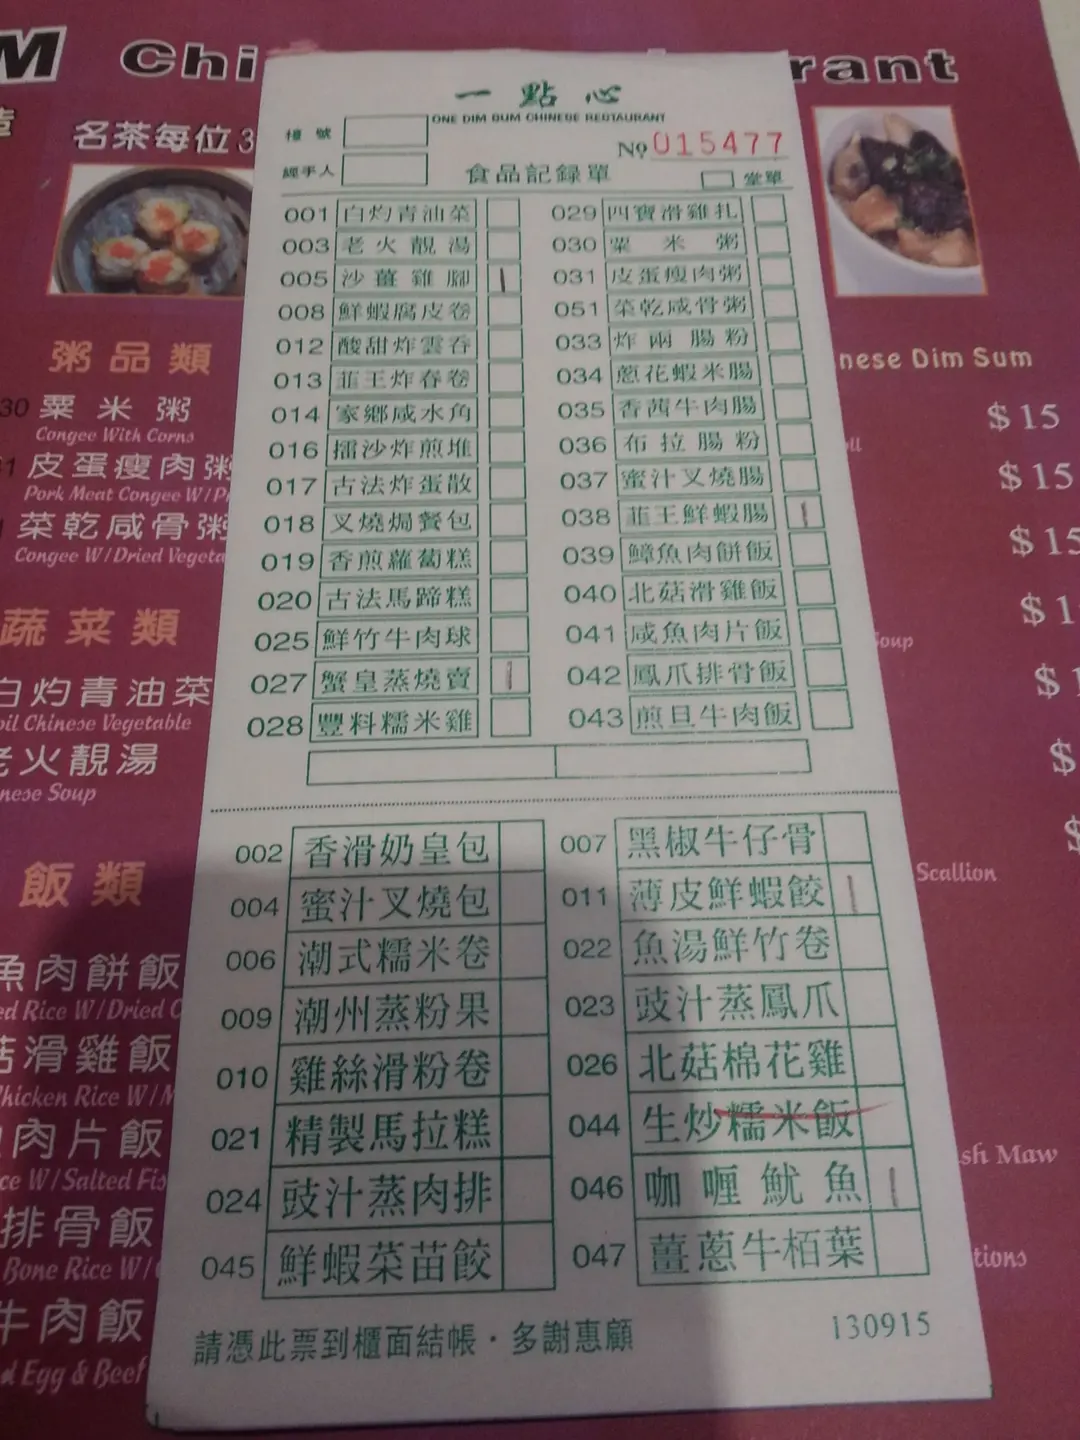 M Chi
rant
名茶每位3
一點心
ONE DIM SUM CHINESE RESTAURANT
檯號
№ 015477
經手人
食品記録單
堂單
001 白灼青油菜
003 老火靚湯
005 沙薑雞腳
008 鮮蝦腐皮卷
012 酸甜炸雲吞
013 韮王炸春卷
014 家鄉咸水角
016 擂沙炸煎堆
017 古法炸蛋散
018 叉燒焗餐包
019 香煎蘿蔔糕
020 古法馬蹄糕
025 鮮竹牛肉球
027 蟹皇蒸燒賣
028 豐料糯米雞
029 四寶滑雞扎
030 粟米粥
031 皮蛋瘦肉粥
051 菜乾咸骨粥
033 炸兩腸粉
034 蔥花蝦米腸
035 香茜牛肉腸
036 布拉腸粉
037 蜜汁叉燒腸
038 韮王鮮蝦腸
039 鱆魚肉餅飯
040 北菇滑雞飯
041 咸魚肉片飯
042 鳳爪排骨飯
043 煎旦牛肉飯
002 香滑奶皇包
004 蜜汁叉燒包
006 潮式糯米卷
009 潮州蒸粉果
010 雞絲滑粉卷
021 精製馬拉糕
024 豉汁蒸肉排
045 鮮蝦菜苗餃
007 黑椒牛仔骨
011 薄皮鮮蝦餃
022 魚湯鮮竹卷
023 豉汁蒸鳳爪
026 北菇棉花雞
044 生炒糯米飯
046 咖喱魷魚
047 薑蔥牛栢葉
請憑此票到櫃面結帳·多謝惠顧
130915
粥品類
30 粟米粥
Congee With Corns
皮蛋瘦肉粥
Pork Meat Congee W/P
菜乾咸骨粥
Congee W/Dried Vegeta
蔬菜類
白灼青油菜
oil Chinese Vegetable
老火靚湯
nese Soup
飯類
魚肉餅飯
ed Rice W/Dried C
菇滑雞飯
Chicken Rice W/M
肉片飯
ce W/Salted Fis
排骨飯
Bone Rice W/
牛肉飯
d Egg & Beef
nese Dim Sum
$15
$15
$15
$1
$1
$
$
Soup
Scallion
ish Maw
tions